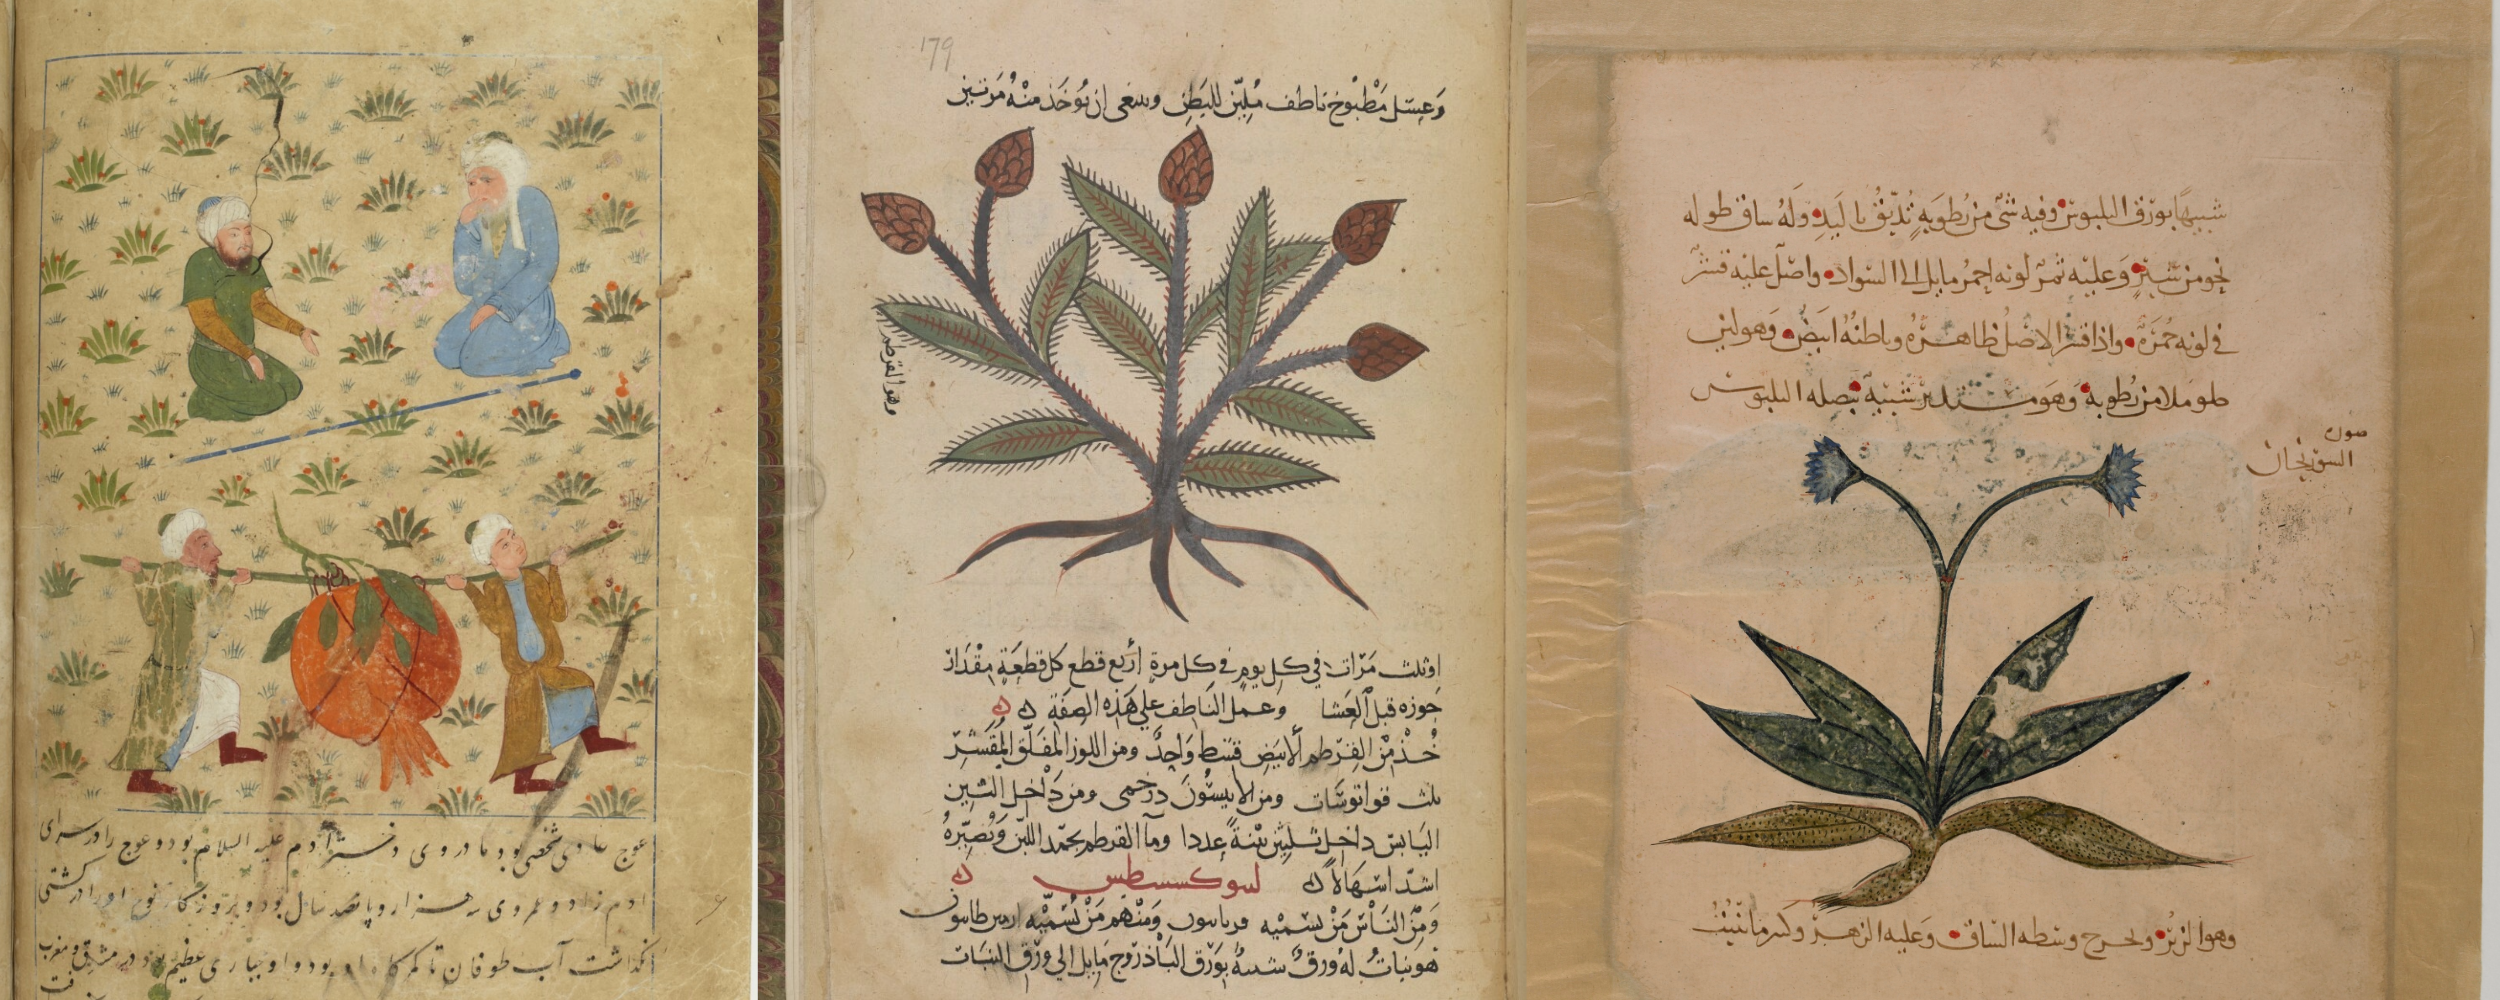 عوج بنا دی شخصی بود مادر وی دختر آدم علیه السلام بود و عوج را در سرای
آدم زاد و عمر وی سه هزار و پانصد سال بود و بروزگار نوح او را در کشتی
نگذاشت آب طوفان تا کمرگاه او بود و او بسیاری عظیم بود در مشرق و مغرب
179
وَعسَل مَطْبُوخ ناطف مُليّن للبَطن وينبغى ان يُوخَذ منْهُ مَرتين
وهو القرطم
او ثلث مَرّات في كل يوم في كل مرة أربع قطع كل قطعَة مِقْدَار
جَوزه قبل العَشا وعمل النَاطف علي هَذه الصِفَة
خُذ مْن القِرطم الابيَض قسط وَاحِدٌ ومن اللوز المفَلّق المقَشّر
ثلث قواتوسَات ومن الانيسُون درخمى ومن دَاخل التين
اليَابسْ داخل ثلثين تينَةً عددا ومآ القرطم يجمّد اللبَن وَنُصيّرهُ
اشدّ اسهَالاً
لبوكسسطس
وَمِنَ النَاسْ مَنْ يسَمْيه وَمنْهم مَنْ يُسَمّيْه
هو نبَاتُ لهُ ورقٌ شبيهٌ بوَرّق البَاذرَوج مَايل الي وَرّق النبَات
شبيهًا بورَق البلبوسْ وفيه شىٌ من رُطوبَةٍ تُدبّقُ باليَدِ وَلَهُ ساق طوله
نحو من شبْرٍ وَعليْه ثمرٌ لونه احمرُ مايل الى السّواد واصْل عليْه قشرٌ
في لونه حُمرَةٌ واذا قشر الاصْلُ ظاهرُهُ وباطنُهُ ابيَض وَهو لين
حلو ملا من رُطوبه وَهوَ مستديرٌ شبيْه ببصله البلبوس
صورة
السورنجان
وهوا لزيْز ويخرج وسطه السّاق وَعليه الزهرْ وَ